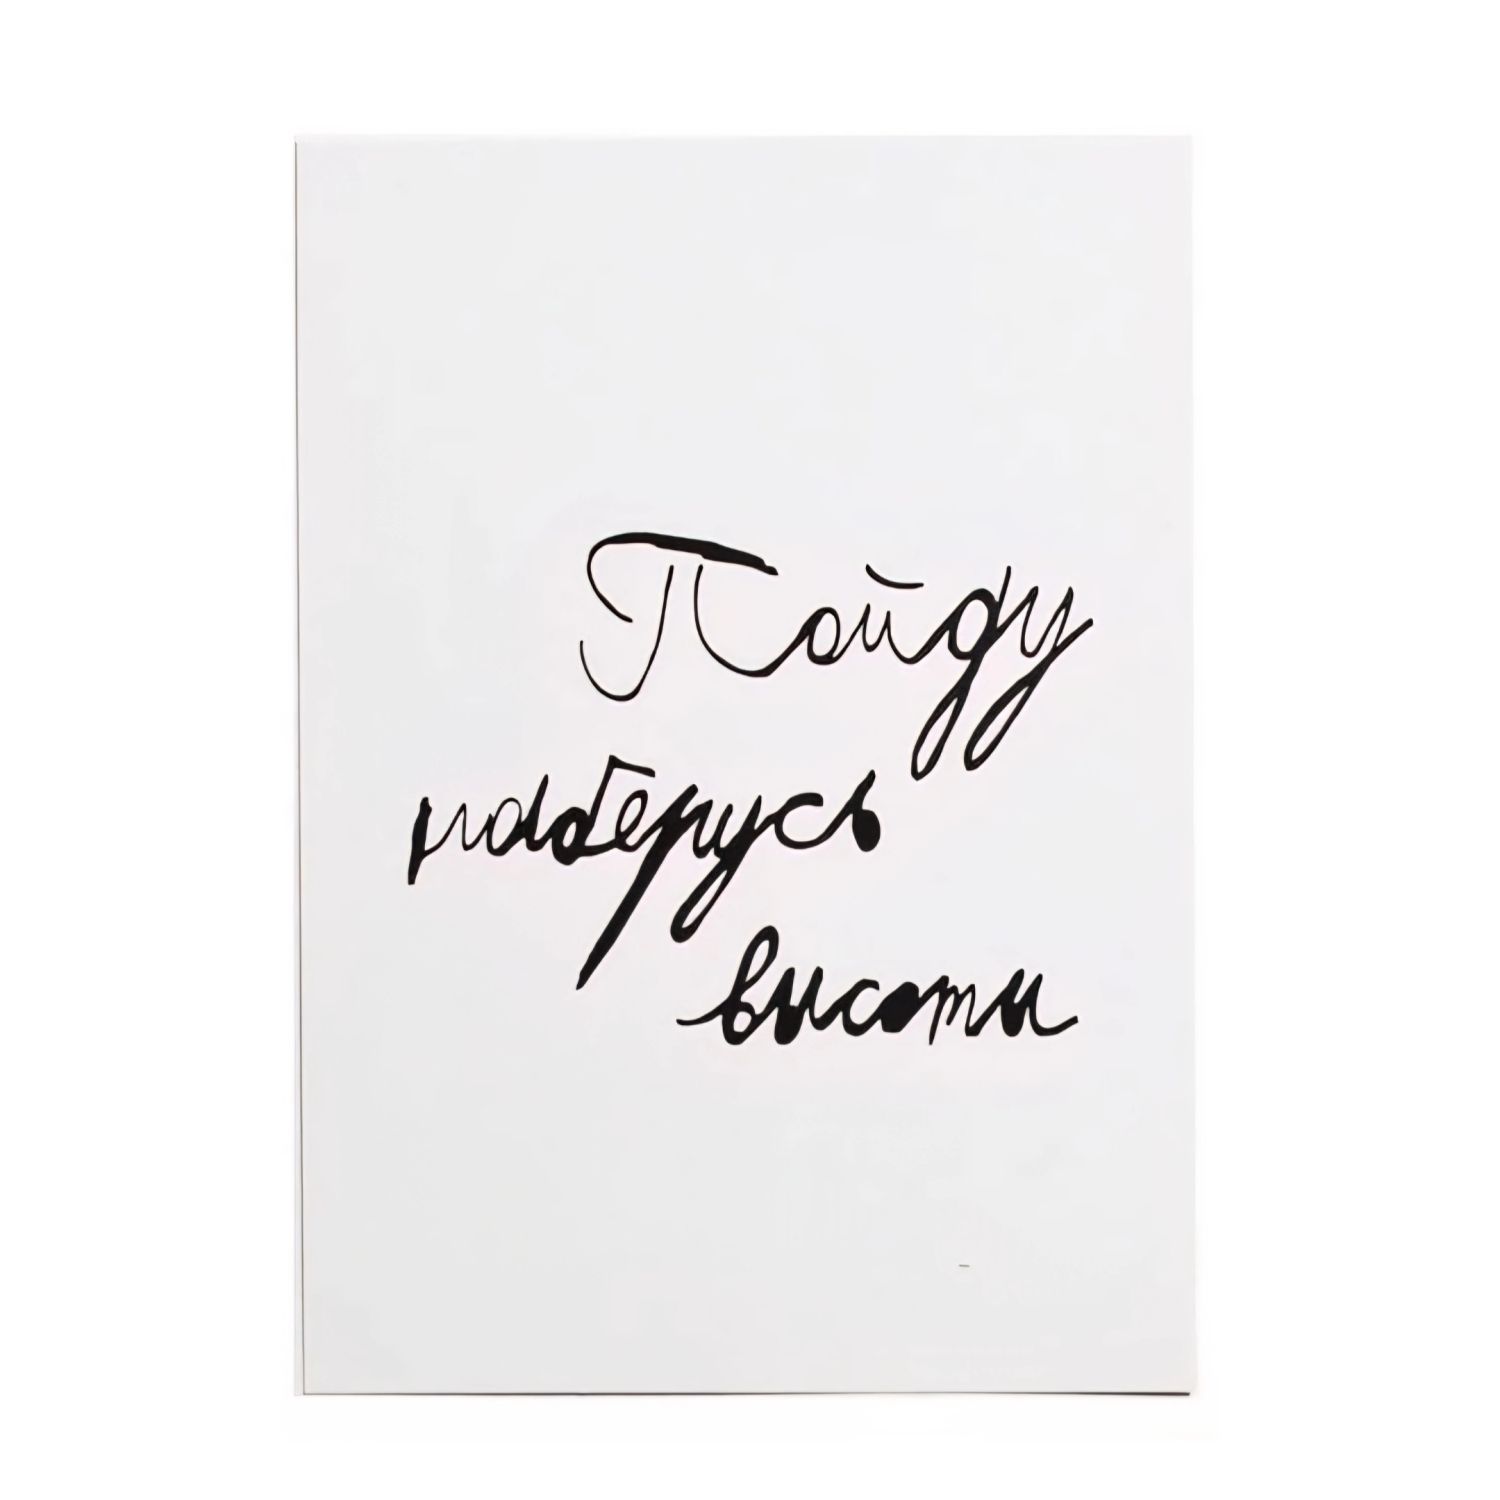 Пойду
наберусь
высоты